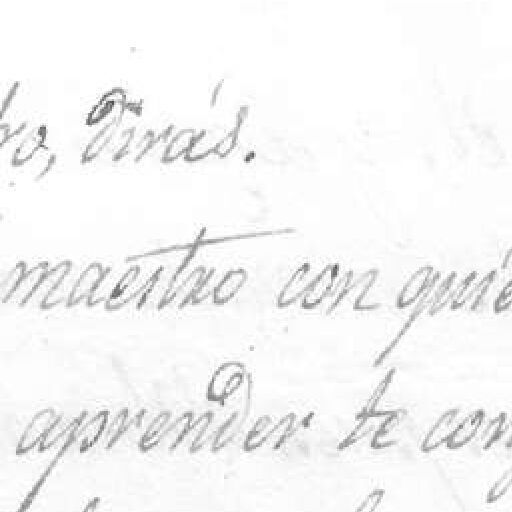 ro, dirás.
maestro con quié
aprender te con